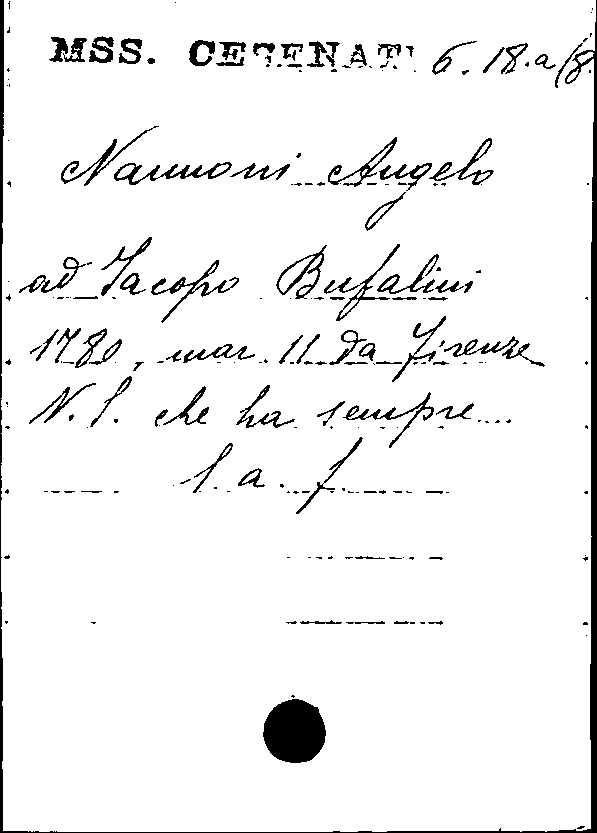 MSS. CESENATI 6. 18. a/8.
Nannoni Angelo
ad Jacopo Bufalini
1780, mar. 11 da Firenze
N. S. che ha sempre...
l. a. f.